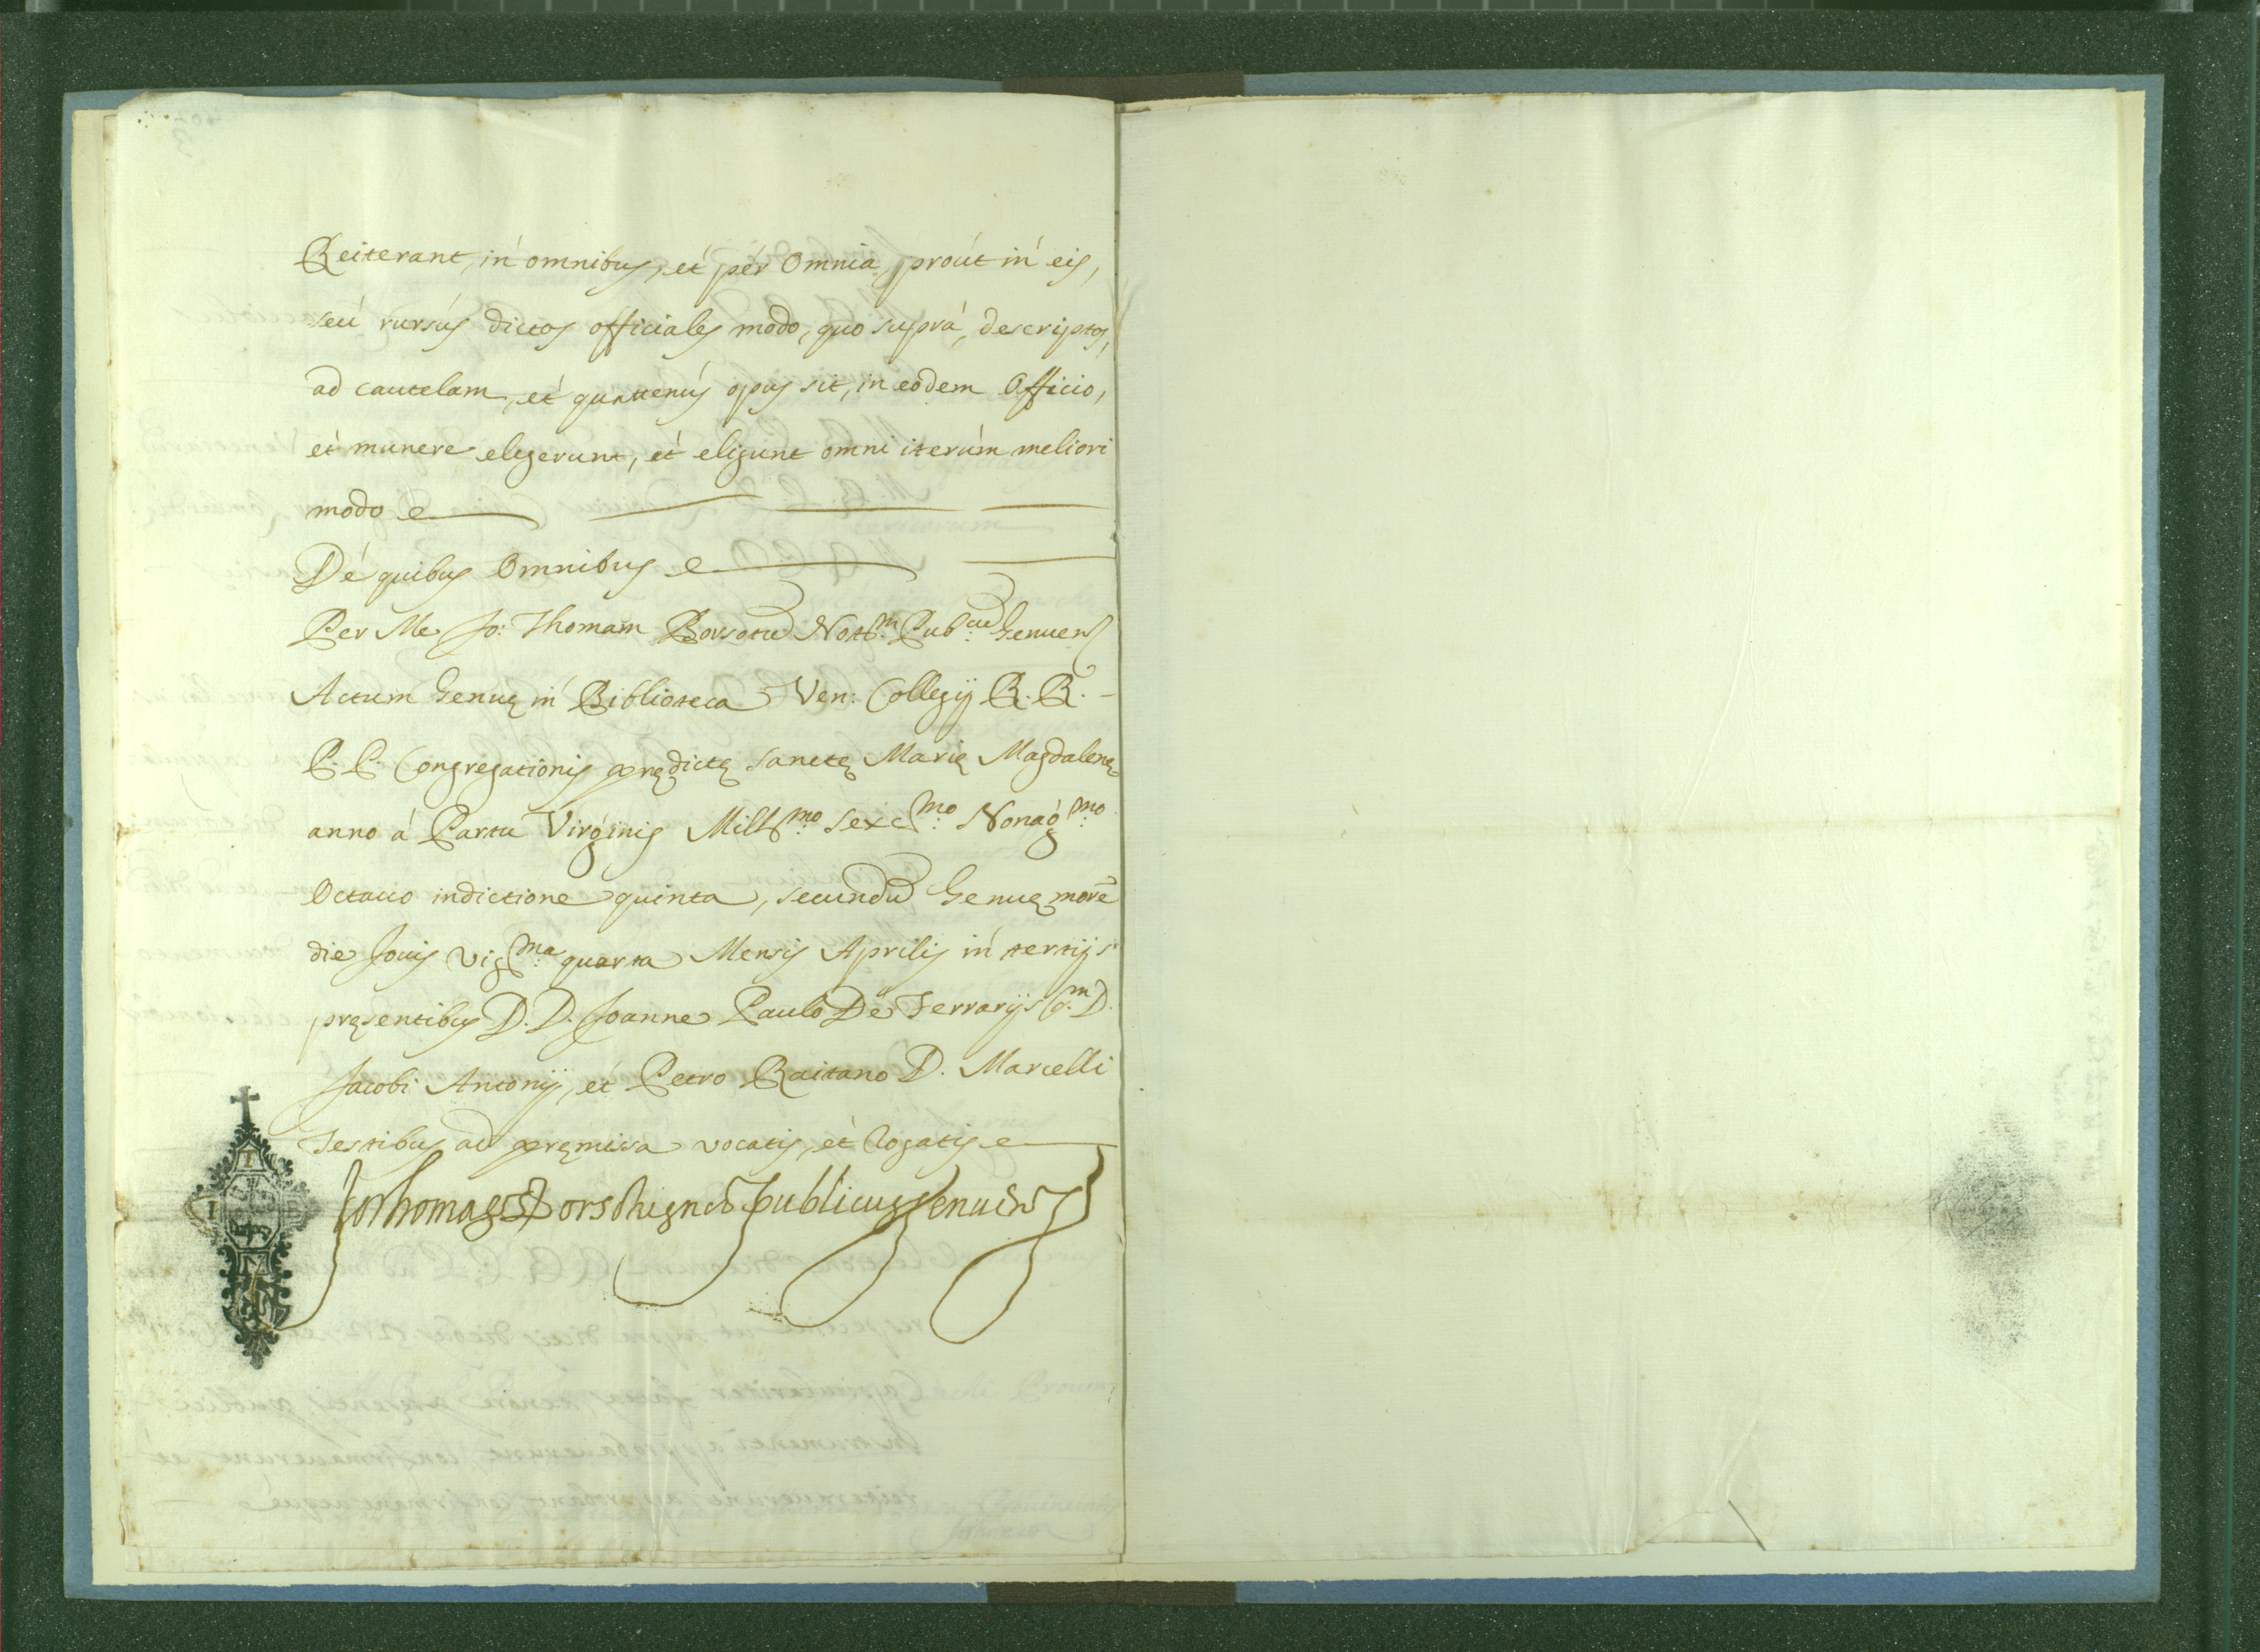 Reiterant, in omnibus, et per Omnia, prout in eis,
seu rursus dictos officiales modo, quo supra, descriptos,
ad cautelam, et quatenus opus sit, in eodem Officio,
et munere elegerunt, et eligunt omni iterum meliori
modo
De quibus Omnibus
Per Me Jo: Thomam Borsotu Not.m Pub.cu Genuens
Actum Genuę in Biblioteca Ven: Collegij R. R.
P. P. Congregationis prędictę Sanctę Marię Magdalenę
anno á Partu Virginis Mill.mo Sexc.mo Nonag.mo
Octauo indictione quinta, secundu Genuę more
die Jouis Vig.ma quarta Mensis Aprilis in tertijs
pręsentibus D. D. Joanne Paulo De Ferrarijs q.m D.
Jacobi Antonij, et Petro Raitano D. Marcelli
Testibus ad pręmissa vocatis, et Rogatis
Jo Thomas Borsot publicus Genuens